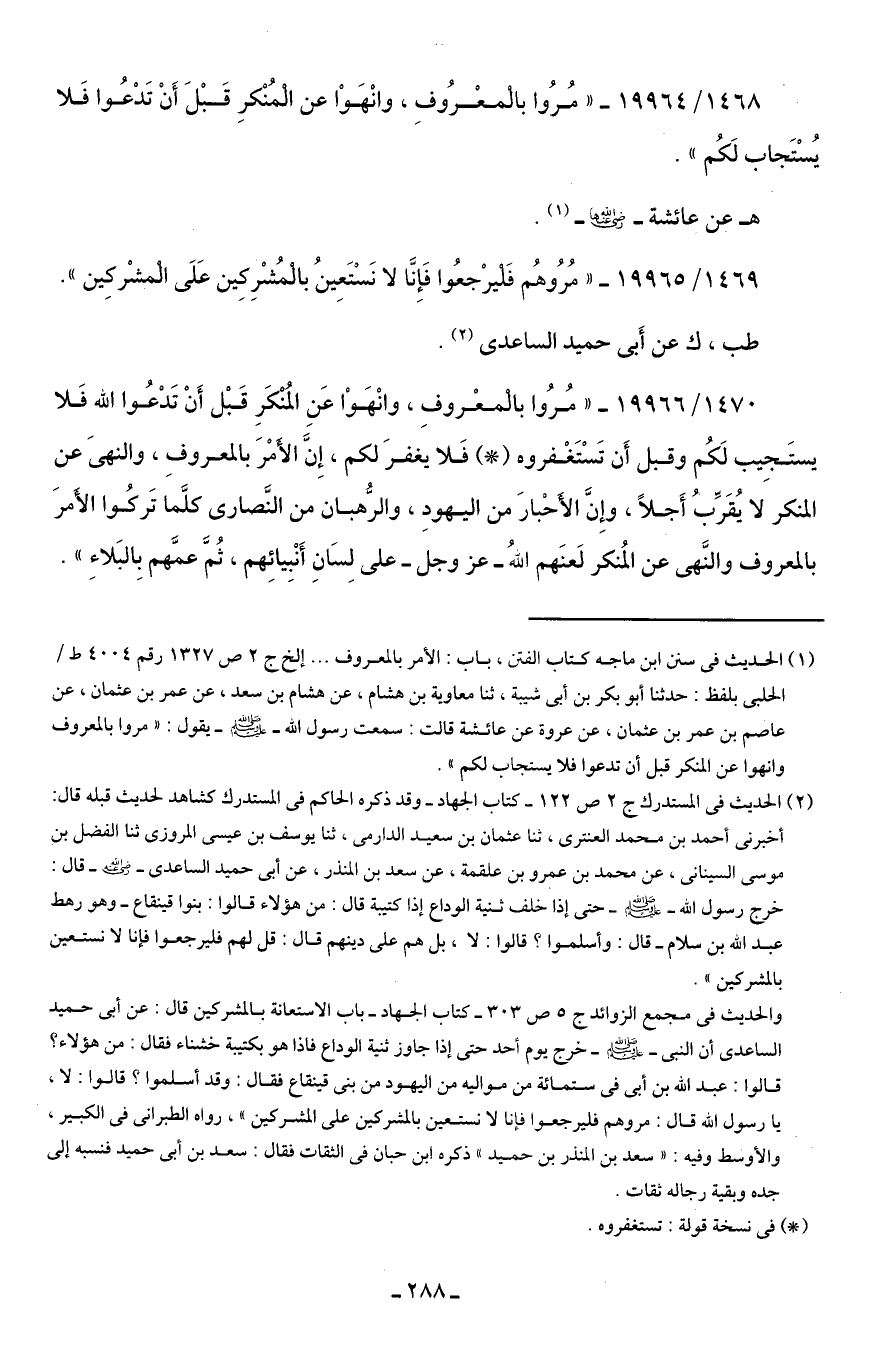 ١٤٦٨/ ١٩٩٦٤ ـ « مُرُوا بالْمعْرُوفِ ، وانْهَوْا عن الْمُنْكرِ قَبْلَ أَنْ تَدْعُوا فَلا
يُسْتَجاب لَكُم » .
هـ عن عائشة ـ رضي الله عنها ـ (١) .
١٤٦٩/ ١٩٩٦٥ ـ « مُرُوهُم فَلْيرْجعُوا فَإِنَّا لا نَسْتَعِينُ بالْمُشْرِكِين عَلَى الْمشْرِكين ».
طب ، ك عن أَبى حميد الساعدى (٢) .
١٤٧٠/ ١٩٩٦٦ ـ « مُرُوا بالْمعْروفِ ، وانْهَوْا عَنِ الْمُنْكَرِ قَبْل أَنْ تَدْعُوا الله فَلا
يستَجِيب لَكُم وقبل أَن تَسْتَغْفروه (*) فَلا يغفرَ لكم ، إِنَّ الأَمْرَ بالمعروف ، والنهىَ عن
المنكر لا يُقَرِّبُ أَجلاً ، وإِنَّ الأَحْبارَ من اليهودِ ، والرُّهبان من النَّصارى كلَّما تَركُوا الأَمرَ
بالمعروف والنَّهى عن الْمُنكر لَعنَهم اللهُ ـ عز وجل ـ على لِسَانِ أَنْبِيائِهم ، ثُمَّ عمَّهم بِالبَلاءِ » .
(١) الحديث فى سنن ابن ماجه كتاب الفتن ، باب : الأمر بالمعروف ... إلخ ج ٢ ص ١٣٢٧ رقم ٤٠٠٤ ط /
الحلبى بلفظ : حدثنا أبو بكر بن أبى شيبة ، ثنا معاوية بن هشام ، عن هشام بن سعد ، عن عمر بن عثمان ، عن
عاصم بن عمر بن عثمان ، عن عروة عن عائشة قالت : سمعت رسول الله ـ ﷺ ـ يقول : « مروا بالمعروف
وانهوا عن المنكر قبل أن تدعوا فلا يستجاب لكم » .
(٢) الحديث فى المستدرك ج ٢ ص ١٢٢ ـ كتاب الجهاد ـ وقد ذكره الحاكم فى المستدرك كشاهد لحديث قبله قال:
أخبرنى أحمد بن محمد العنترى ، ثنا عثمان بن سعيد الدارمى ، ثنا يوسف بن عيسى المروزى ثنا الفضل بن
موسى السينانى ، عن محمد بن عمرو بن علقمة ، عن سعد بن المنذر ، عن أبى حميد الساعدى ـ رضي الله عنه ـ قال :
خرج رسول الله ـ ﷺ ـ حتى إذا خلف ثنية الوداع إذا كتيبة قال : من هؤلاء قالوا : بنوا قينقاع ـ وهو رهط
عبد الله بن سلام ـ قال : وأسلموا ؟ قالوا : لا ، بل هم على دينهم قال : قل لهم فليرجعوا فإنا لا نستعين
بالمشركين » .
والحديث فى مجمع الزوائد ج ٥ ص ٣٠٣ ـ كتاب الجهاد ـ باب الاستعانة بالمشركين قال : عن أبى حميد
الساعدى أن النبى ـ ﷺ ـ خرج يوم أحد حتى إذا جاوز ثنية الوداع فاذا هو بكتيبة خشناء فقال : من هؤلاء؟
قالوا : عبد الله بن أبى فى ستمائة من مواليه من اليهود من بنى قينقاع فقال : وقد أسلموا ؟ قالوا : لا ،
يا رسول الله قال : مروهم فليرجعوا فإنا لا نستعين بالمشركين على المشركين » ، رواه الطبرانى فى الكبير ،
والأوسط وفيه : « سعد بن المنذر بن حميد » ذكره ابن حبان فى الثقات فقال : سعد بن أبى حميد فنسبه إلى
جده وبقية رجاله ثقات .
(*) فى نسخة قولة : تستغفروه .
ـ ٢٨٨ ـ